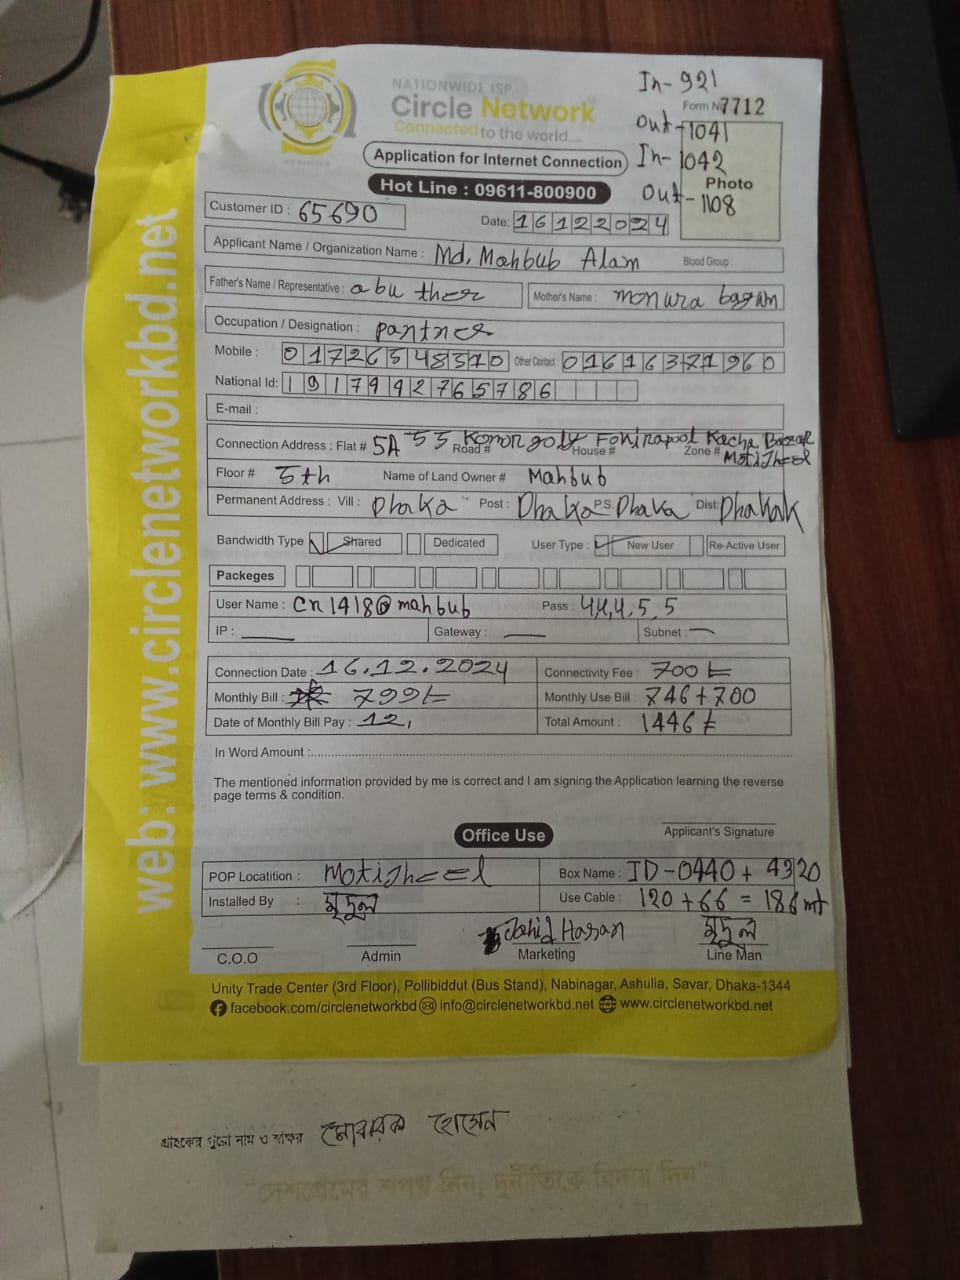 NATIONWIDE ISP
Circle Network
Connected to the world....
In- 921
Form No 7712
Out-1041
In- 1042
Out- 1108
Photo
Application for Internet Connection
Hot Line : 09611-800900
Customer ID : 65690
Date: 16122024
Applicant Name / Organization Name : Md, Mahbub Alam Blood Group :
Father's Name / Representative : abu ther Mother's Name : monura bagum
Occupation / Designation : partner
Mobile : 01726548310 Other Contact : 01616371960
National Id: 19179942765786
E-mail :
Connection Address : Flat # 5A 55 Road # House # Fokirapool Kacha Bazar
Zone # MotiJheel
Floor # 5th Name of Land Owner # Mahbub
Permanent Address : Vill : Dhaka Post : Dhaka P.S. Dhaka Dist: Dhakak
Bandwidth Type Shared Dedicated User Type : New User Re-Active User
Packeges
User Name : cn1418@mahbub Pass : 4,4,4,5,5
IP : Gateway : Subnet :
Connection Date : 16.12.2024 Connectivity Fee : 700 t
Monthly Bill : 799t Monthly Use Bill : 746+700
Date of Monthly Bill Pay : 12, Total Amount : 1446 t
In Word Amount :
The mentioned information provided by me is correct and I am signing the Application learning the reverse
page terms & condition.
Applicant's Signature
Office Use
POP Locatition : MotiJheel Box Name : ID-0440 + 4320
Installed By : মৃদুল Use Cable : 120+66 = 186 mt
Jahid Hasan মৃদুল
C.O.O Admin Marketing Line Man
Unity Trade Center (3rd Floor), Pollibiddut (Bus Stand), Nabinagar, Ashulia, Savar, Dhaka-1344
facebook.com/circlenetworkbd info@circlenetworkbd.net www.circlenetworkbd.net
web: www.circlenetworkbd.net
গ্রাহকের পুরো নাম ও স্বাক্ষর মোবারক হোসেন
"দেশপ্রেমের শপথ নিন, দুর্নীতিকে বিদায় দিন"